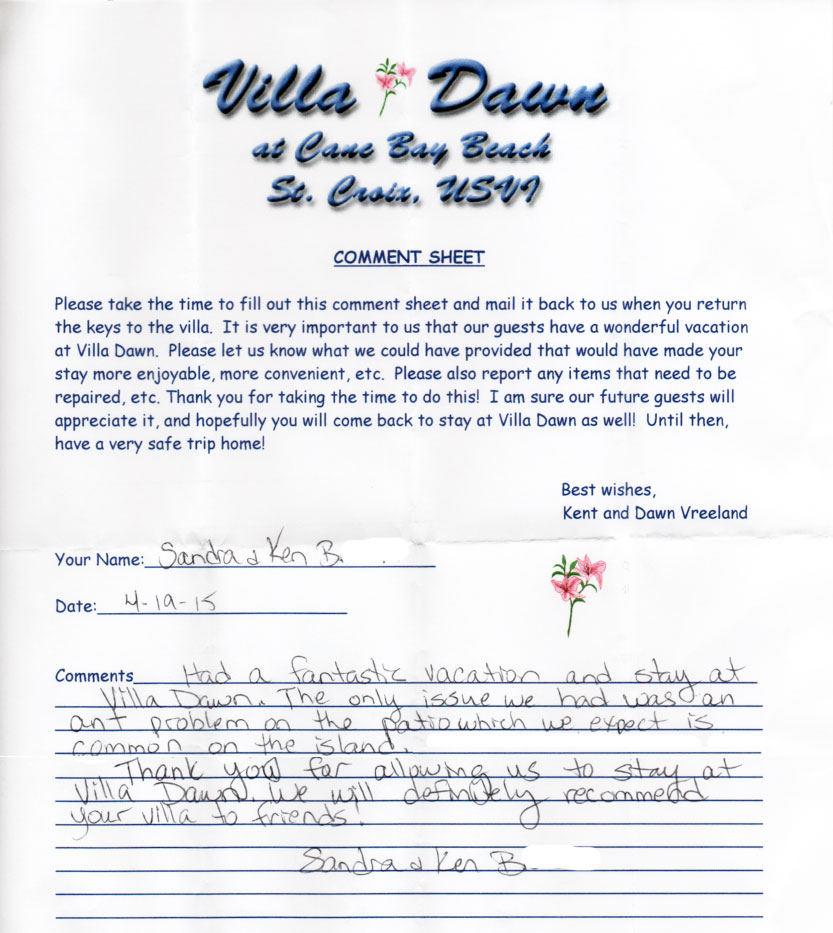 Villa Dawn
at Cane Bay Beach
St. Croix, USVI
COMMENT SHEET
Please take the time to fill out this comment sheet and mail it back to us when you return
the keys to the villa. It is very important to us that our guests have a wonderful vacation
at Villa Dawn. Please let us know what we could have provided that would have made your
stay more enjoyable, more convenient, etc. Please also report any items that need to be
repaired, etc. Thank you for taking the time to do this! I am sure our future guests will
appreciate it, and hopefully you will come back to stay at Villa Dawn as well! Until then,
have a very safe trip home!
Best wishes,
Kent and Dawn Vreeland
Your Name: Sandra & Ken B.
Date: 4-19-15
Comments Had a fantastic vacation and stay at
Villa Dawn. The only issue we had was an
ant problem on the patio which we expect is
common on the island.
Thank you for allowing us to stay at
Villa Dawn. We will definitely recommend
your villa to friends!
Sandra & Ken B